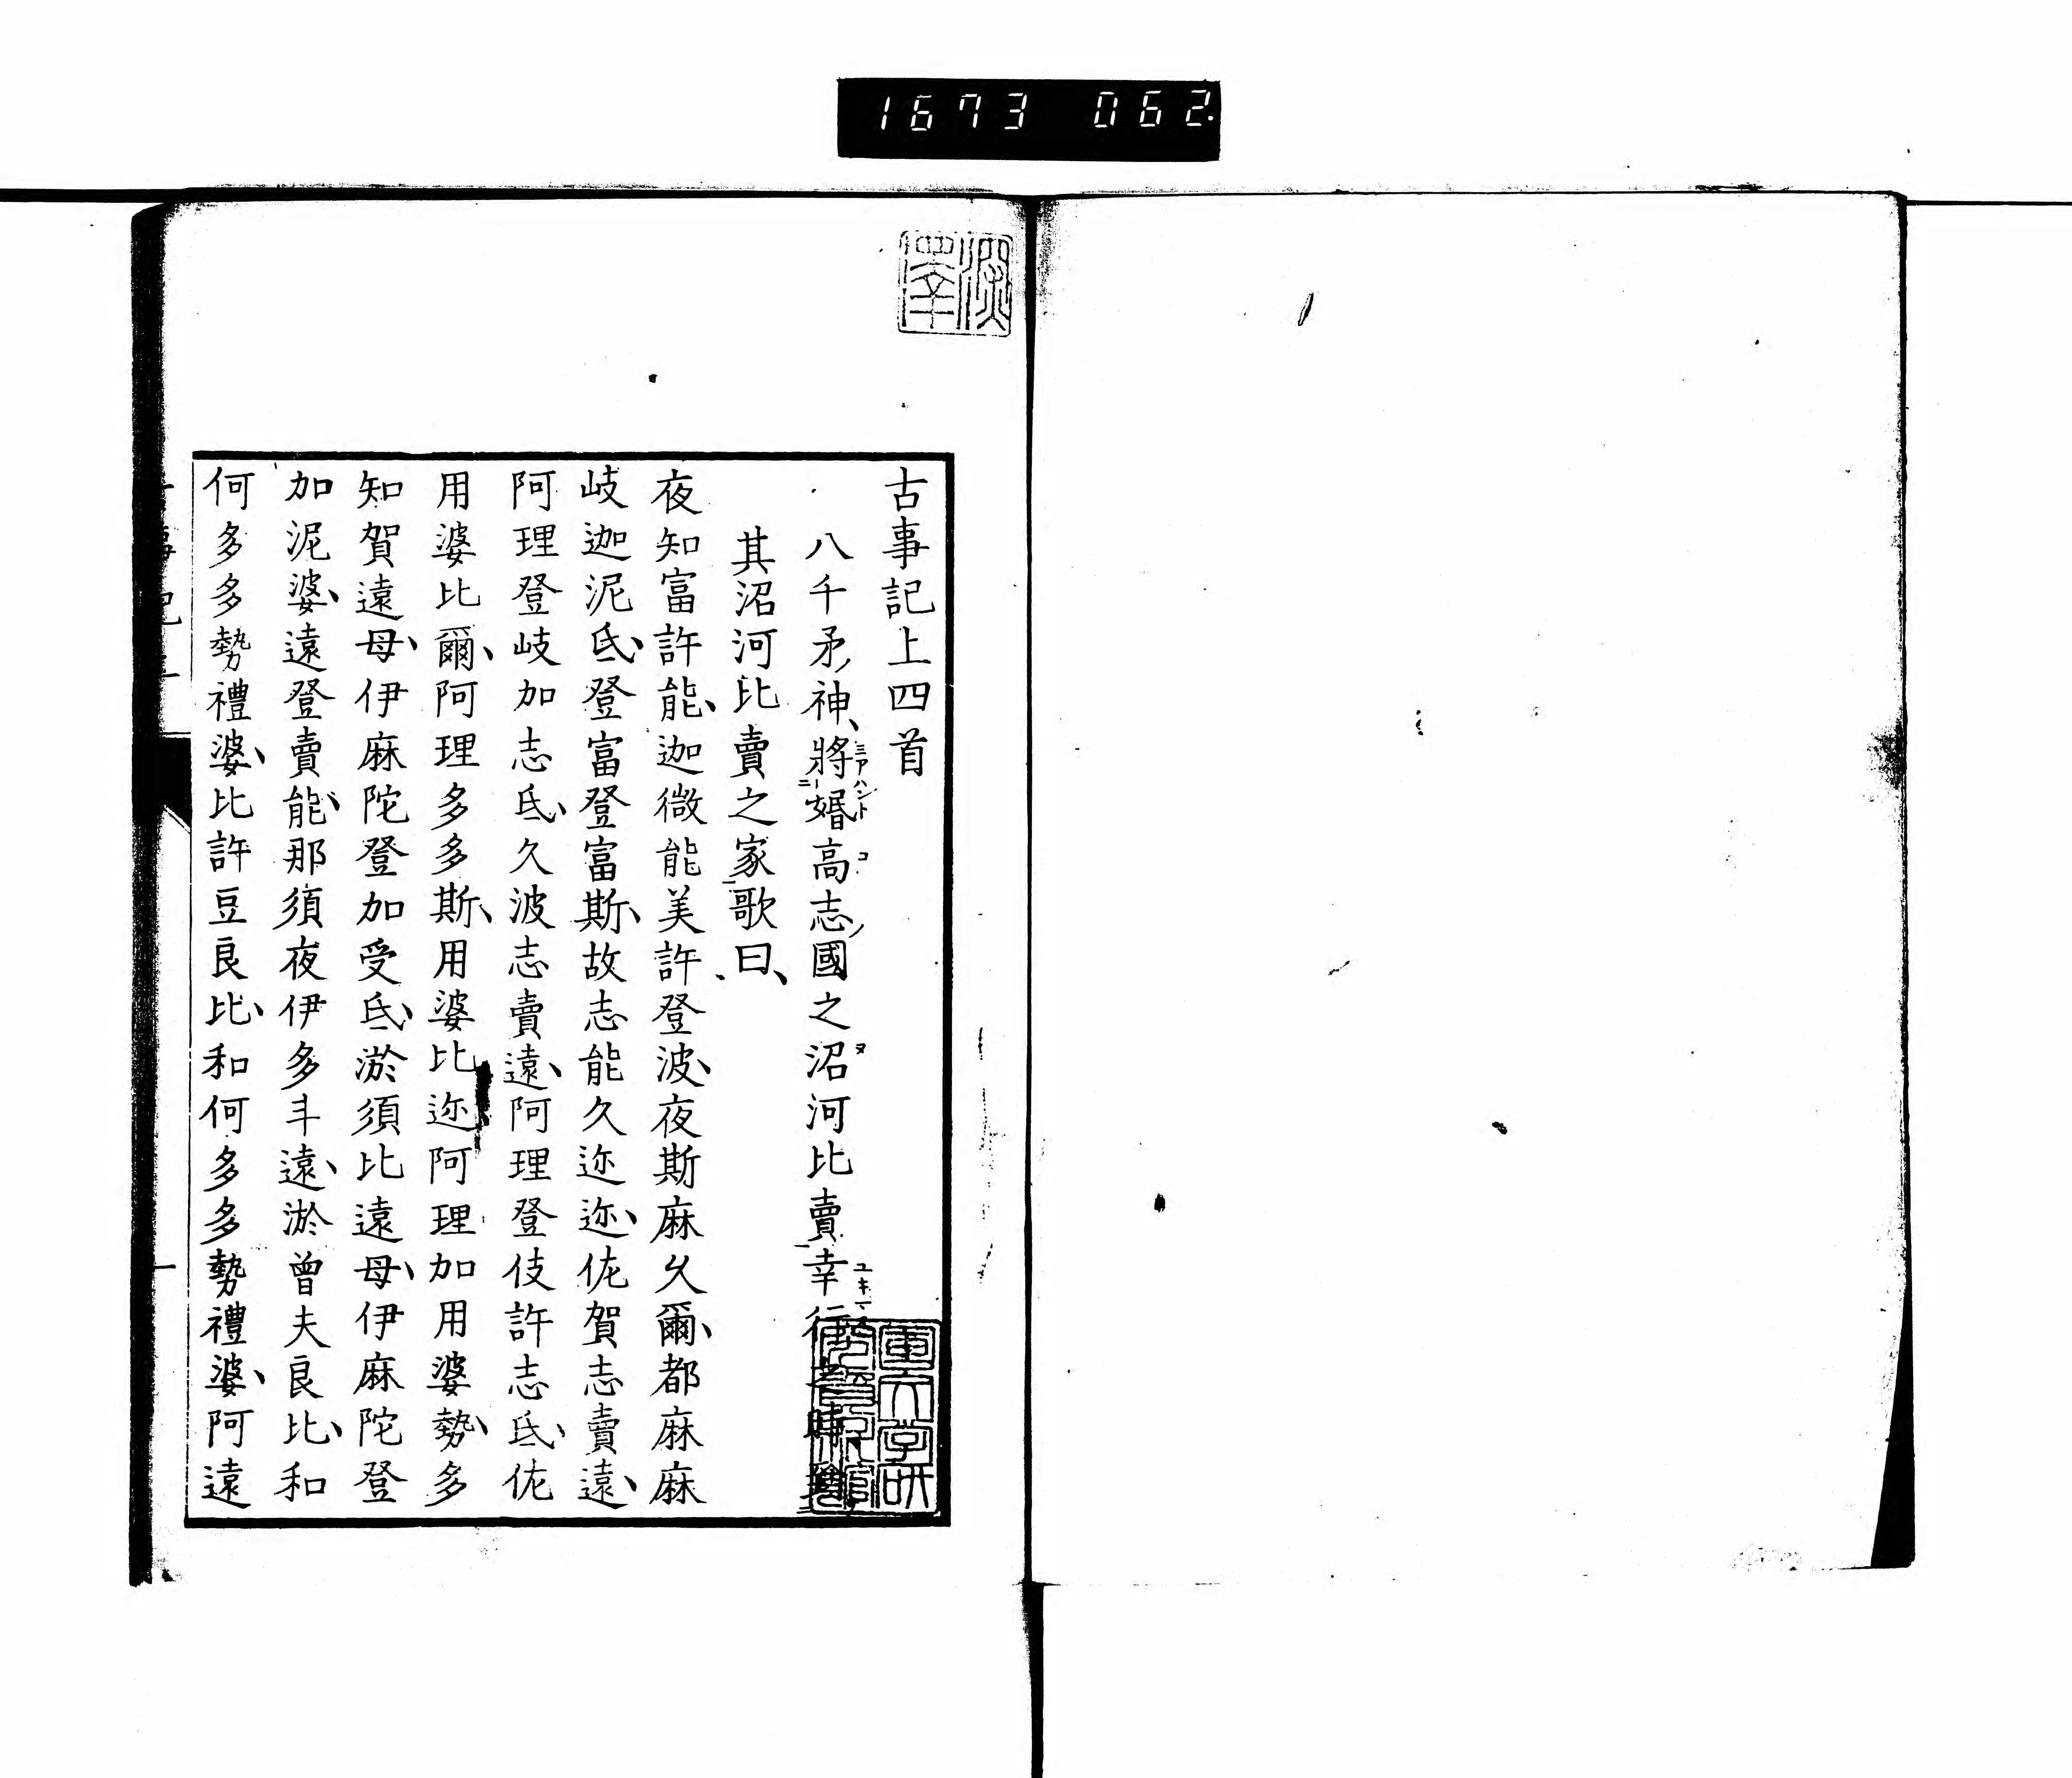 1673 062
古事記上四首
八千矛神、將婚高志國之沼河比賣幸行之時到
其沼河比賣之家歌曰、
夜知富許能、迦微能美許登波、夜斯麻久爾、都麻麻
岐迦泥氐、登富登富斯、故志能久迩迩、佐賀志賣遠、
阿理登岐加志氐、久波志賣遠、阿理登伎許志氐、佐
用婆比爾、阿理多多斯、用婆比迩阿理加用婆勢、多
知賀遠母、伊麻陀登加受氐、淤須比遠母、伊麻陀登
加泥婆、遠登賣能、那須夜伊多斗遠、淤曾夫良比、和
何多多勢禮婆、比許豆良比、和何多多勢禮婆、阿遠